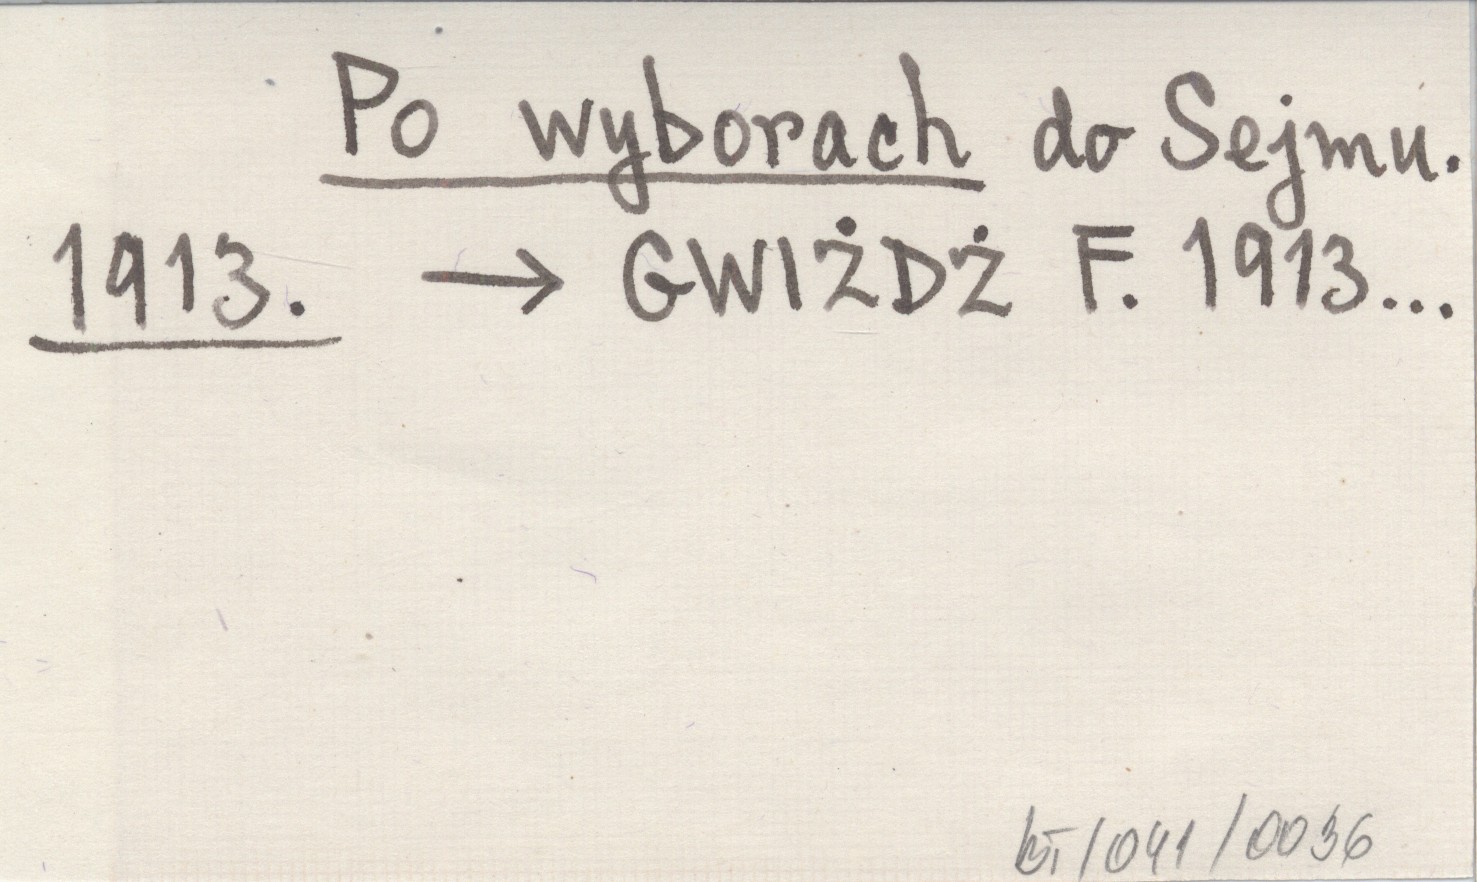 Po wyborach do Sejmu.
1913. → GWIŻDŻ F. 1913...
/041/0036